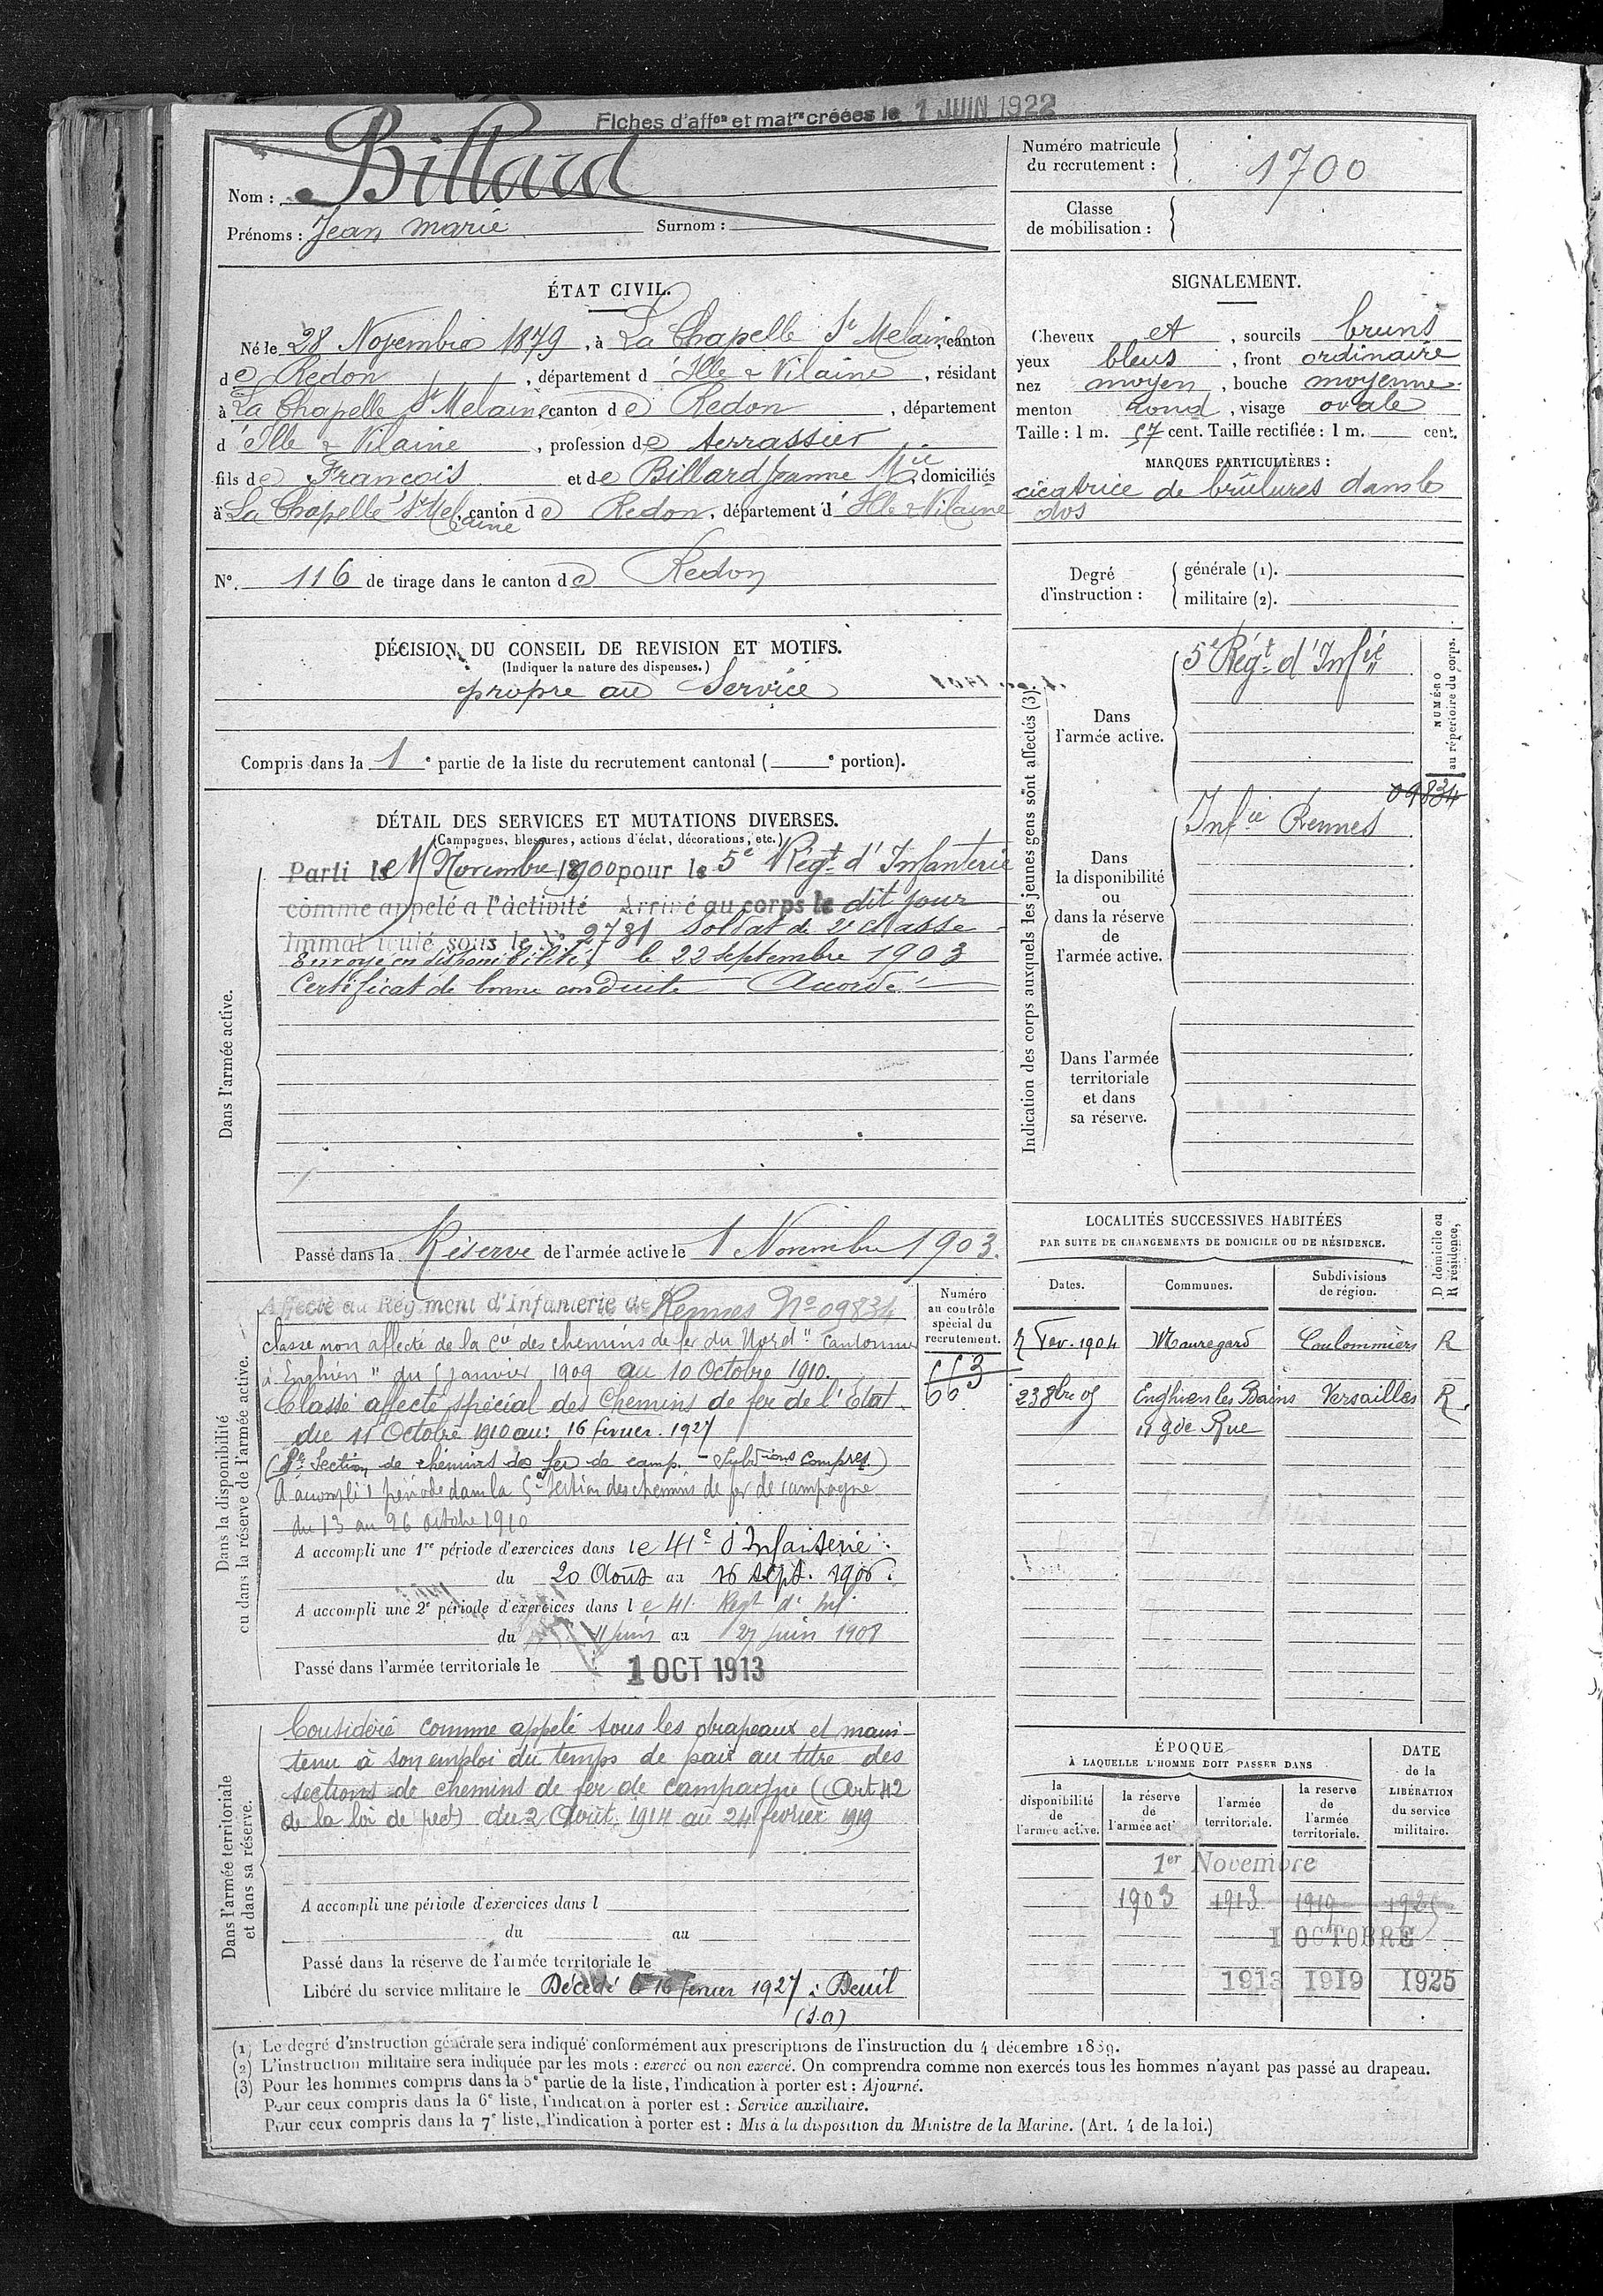 Fiches d'affon et matre créées le 1 JUIN 1922
Nom : Billard
Prénoms : Jean Marie Surnom :
Numéro matricule du recrutement : 1700
Classe de mobilisation :
ÉTAT CIVIL.
Né le 28 Novembre 1879, à La Chapelle St Melaine, canton
de Redon, département d'Ille & Vilaine, résidant
à La Chapelle St Melaine canton de Redon, département
d'Ille & Vilaine, profession de terrassier
fils de François et de Billard Jeanne Mie, domiciliés
à La Chapelle St Melaine, canton de Redon, département d'Ille & Vilaine
N° 116 de tirage dans le canton de Redon
SIGNALEMENT.
Cheveux et, sourcils bruns
yeux bleus, front ordinaire
nez moyen, bouche moyenne
menton rond, visage ovale
Taille : 1 m. 57 cent. Taille rectifiée : 1 m. cent.
MARQUES PARTICULIÈRES :
cicatrice de brûlures dans le
dos
Degré d'instruction : générale (1). militaire (2).
DÉCISION DU CONSEIL DE REVISION ET MOTIFS.
(Indiquer la nature des dispenses.)
propre au Service
Compris dans la 1e partie de la liste du recrutement cantonal ( e portion).
DÉTAIL DES SERVICES ET MUTATIONS DIVERSES.
(Campagnes, blessures, actions d'éclat, décorations, etc.)
Dans l'armée active.
Parti le Novembre 1900 pour le 5e Régt d'Infanterie
comme appelé a l'àctivité Arrivé au corps le dit jour
Immatriculé sous le No 2781 Soldat de 2e classe
Envoyé en disponibilité, le 22 Septembre 1903
Certificat de bonne conduite Accordé
Passé dans la Réserve de l'armée active le 1 Novembre 1903.
Indication des corps auxquels les jeunes gens sont affectés (3).
NUMÉRO au répertoire du corps.
Dans l'armée active.
5e Régt d'Infie
09834
Dans la disponibilité ou dans la réserve de l'armée active.
Infie Rennes
Dans l'armée territoriale et dans sa réserve.
Dans la disponibilité ou dans la réserve de l'armée active.
Numéro au contrôle spécial du recrutement.
Affecté au Régiment d'Infanterie de Rennes No 09834
classé non affecté de la Cie des chemins de fer du Nord " Cantonnier
à Enghien " du 5 Janvier 1909 au 10 Octobre 1910.
Classé affecté spécial des Chemins de fer de l'Etat
du 11 Octobre 1910 au 16 février 1927
(5e Section de chemins de fer de camp. - Subdions compses)
A accompli 1 période dans la 5e Section des chemins de fer de campagne
du 13 au 26 octobre 1910
A accompli une 1re période d'exercices dans le 41e d'Infanterie
du 20 Août au 16 sept. 1906.
A accompli une 2e période d'exercices dans le 41 Regt d'Inf
du 11 juin au 27 juin 1908
Passé dans l'armée territoriale le 1 OCT 1913
LOCALITÉS SUCCESSIVES HABITÉES
PAR SUITE DE CHANGEMENTS DE DOMICILE OU DE RÉSIDENCE.
Dates. Communes. Subdivisions de région. D domicile ou R résidence,
Fev. 1904 Mauregard Coulommiers R
23 8bre 05 Enghien les Bains Versailles R.
11 gde Rue
Dans l'armée territoriale et dans sa réserve.
Considéré comme appelé sous les drapeaux et main-
tenu à son emploi du temps de paix au titre des
sections de chemins de fer de campagne (Art 42
de la loi de rect) du 2 Août 1914 au 24 février 1919
A accompli une période d'exercices dans l
du au
Passé dans la réserve de l'armée territoriale le
Libéré du service militaire le Décédé le 16 fevrier 1927 à Deuil
(S.O)
ÉPOQUE
À LAQUELLE L'HOMME DOIT PASSER DANS
la disponibilité de l'armée active. la réserve de l'armée active l'armée territoriale. la reserve de l'armée territoriale.
DATE de la LIBÉRATION du service militaire.
1er Novembre
1903 1913 1919 1925
1 OCTOBRE
1913 1919 1925
(1) Le degré d'instruction générale sera indiqué conformément aux prescriptions de l'instruction du 4 décembre 1889.
(2) L'instruction militaire sera indiquée par les mots : exercé ou non exercé. On comprendra comme non exercés tous les hommes n'ayant pas passé au drapeau.
(3) Pour les hommes compris dans la 5e partie de la liste, l'indication à porter est : Ajourné.
Pour ceux compris dans la 6e liste, l'indication à porter est : Service auxiliaire.
Pour ceux compris dans la 7e liste, l'indication à porter est : Mis à la disposition du Ministre de la Marine. (Art. 4 de la loi.)